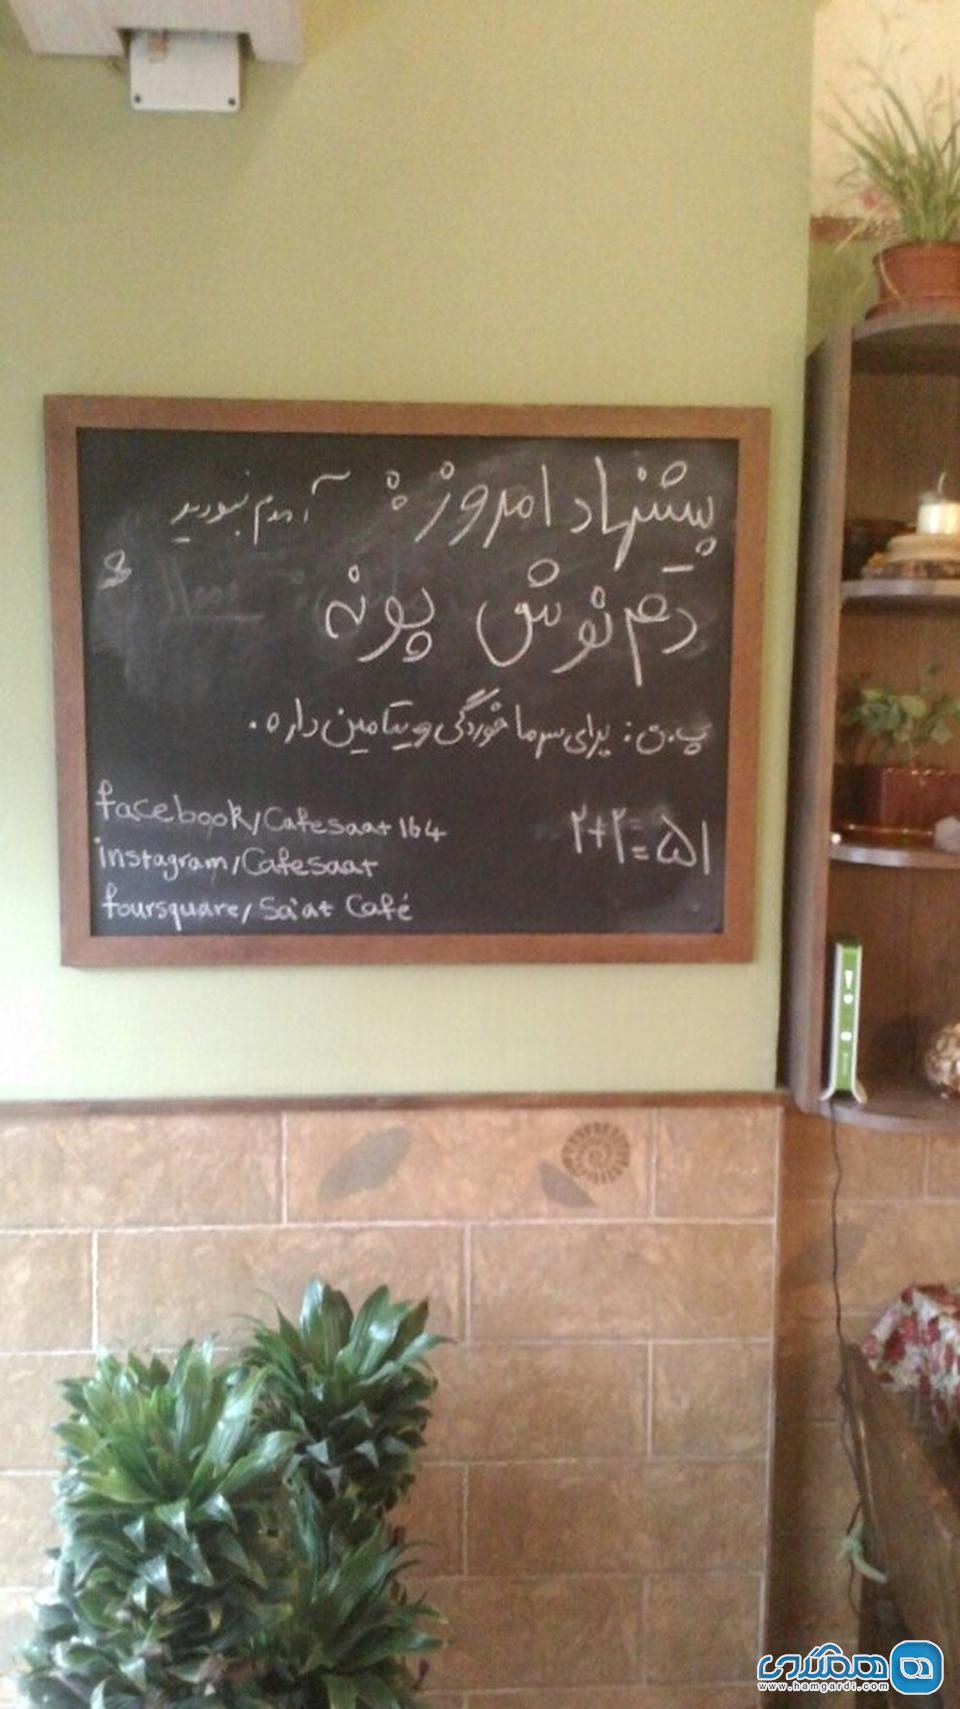 پیشنهاد امروز: آدم نبورید
دم نوش پونه
پ.ن: برای سرماخوردگی ویتامین داره.
۲+۲=۵۱
facebook/Cafesaat 164
instagram/Cafesaat
foursquare/Sa'at Café
همگردی
www.hamgardi.com